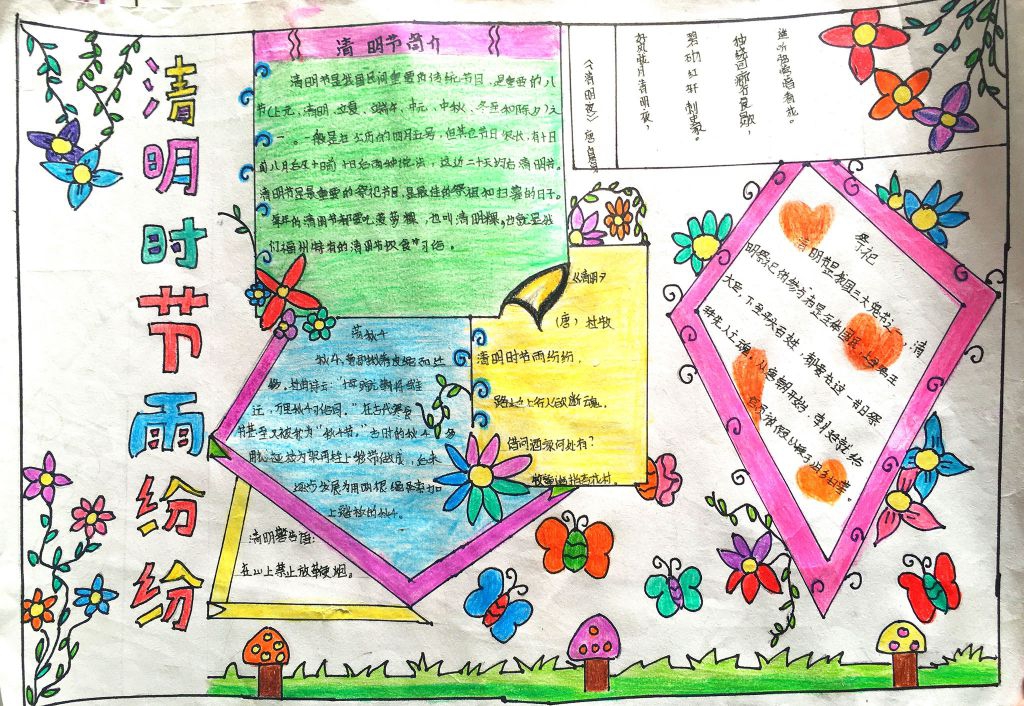 清明时节雨纷纷
清明节简介
清明节是我国民间重要的传统节日,是重要的“八
节(上元、清明、立夏、端午、中元、中秋、冬至和除夕)之
一。一般是在公历的四月五号,但其节日很长,有十日
前八日后及十日前十日后两种说法,这近二十天均属清明节。
清明节是最重要的祭祀节日,是最佳的祭祖和扫墓的日子。
每年的清明节都要吃菠菠粿,也叫清明粿,也就是我
们福州特有的清明节“饮食”习俗。
《清明夜》唐 白居易
好风胧月清明夜,
碧砌红轩刺史家。
独绕回廊行复歇,
遥听弦管暗看花。
荡秋千
秋千,
迁,万里秋千习俗同。”在古代寒食
节甚至又被称为“秋千节。”古时的秋千多
用树丫枝为架再栓上彩带做成,后来
逐步发展为用两根绳索加
上踏板的秋千。
《清明》
(唐)杜牧
清明时节雨纷纷,
路上行人欲断魂。
借问酒家何处有?
牧童遥指杏花村
清明警告语:
在山上禁止放鞭炮。
祭祀
清明节是我国三大鬼节之一,清
大臣,下至平头百姓,都要在这一节日祭